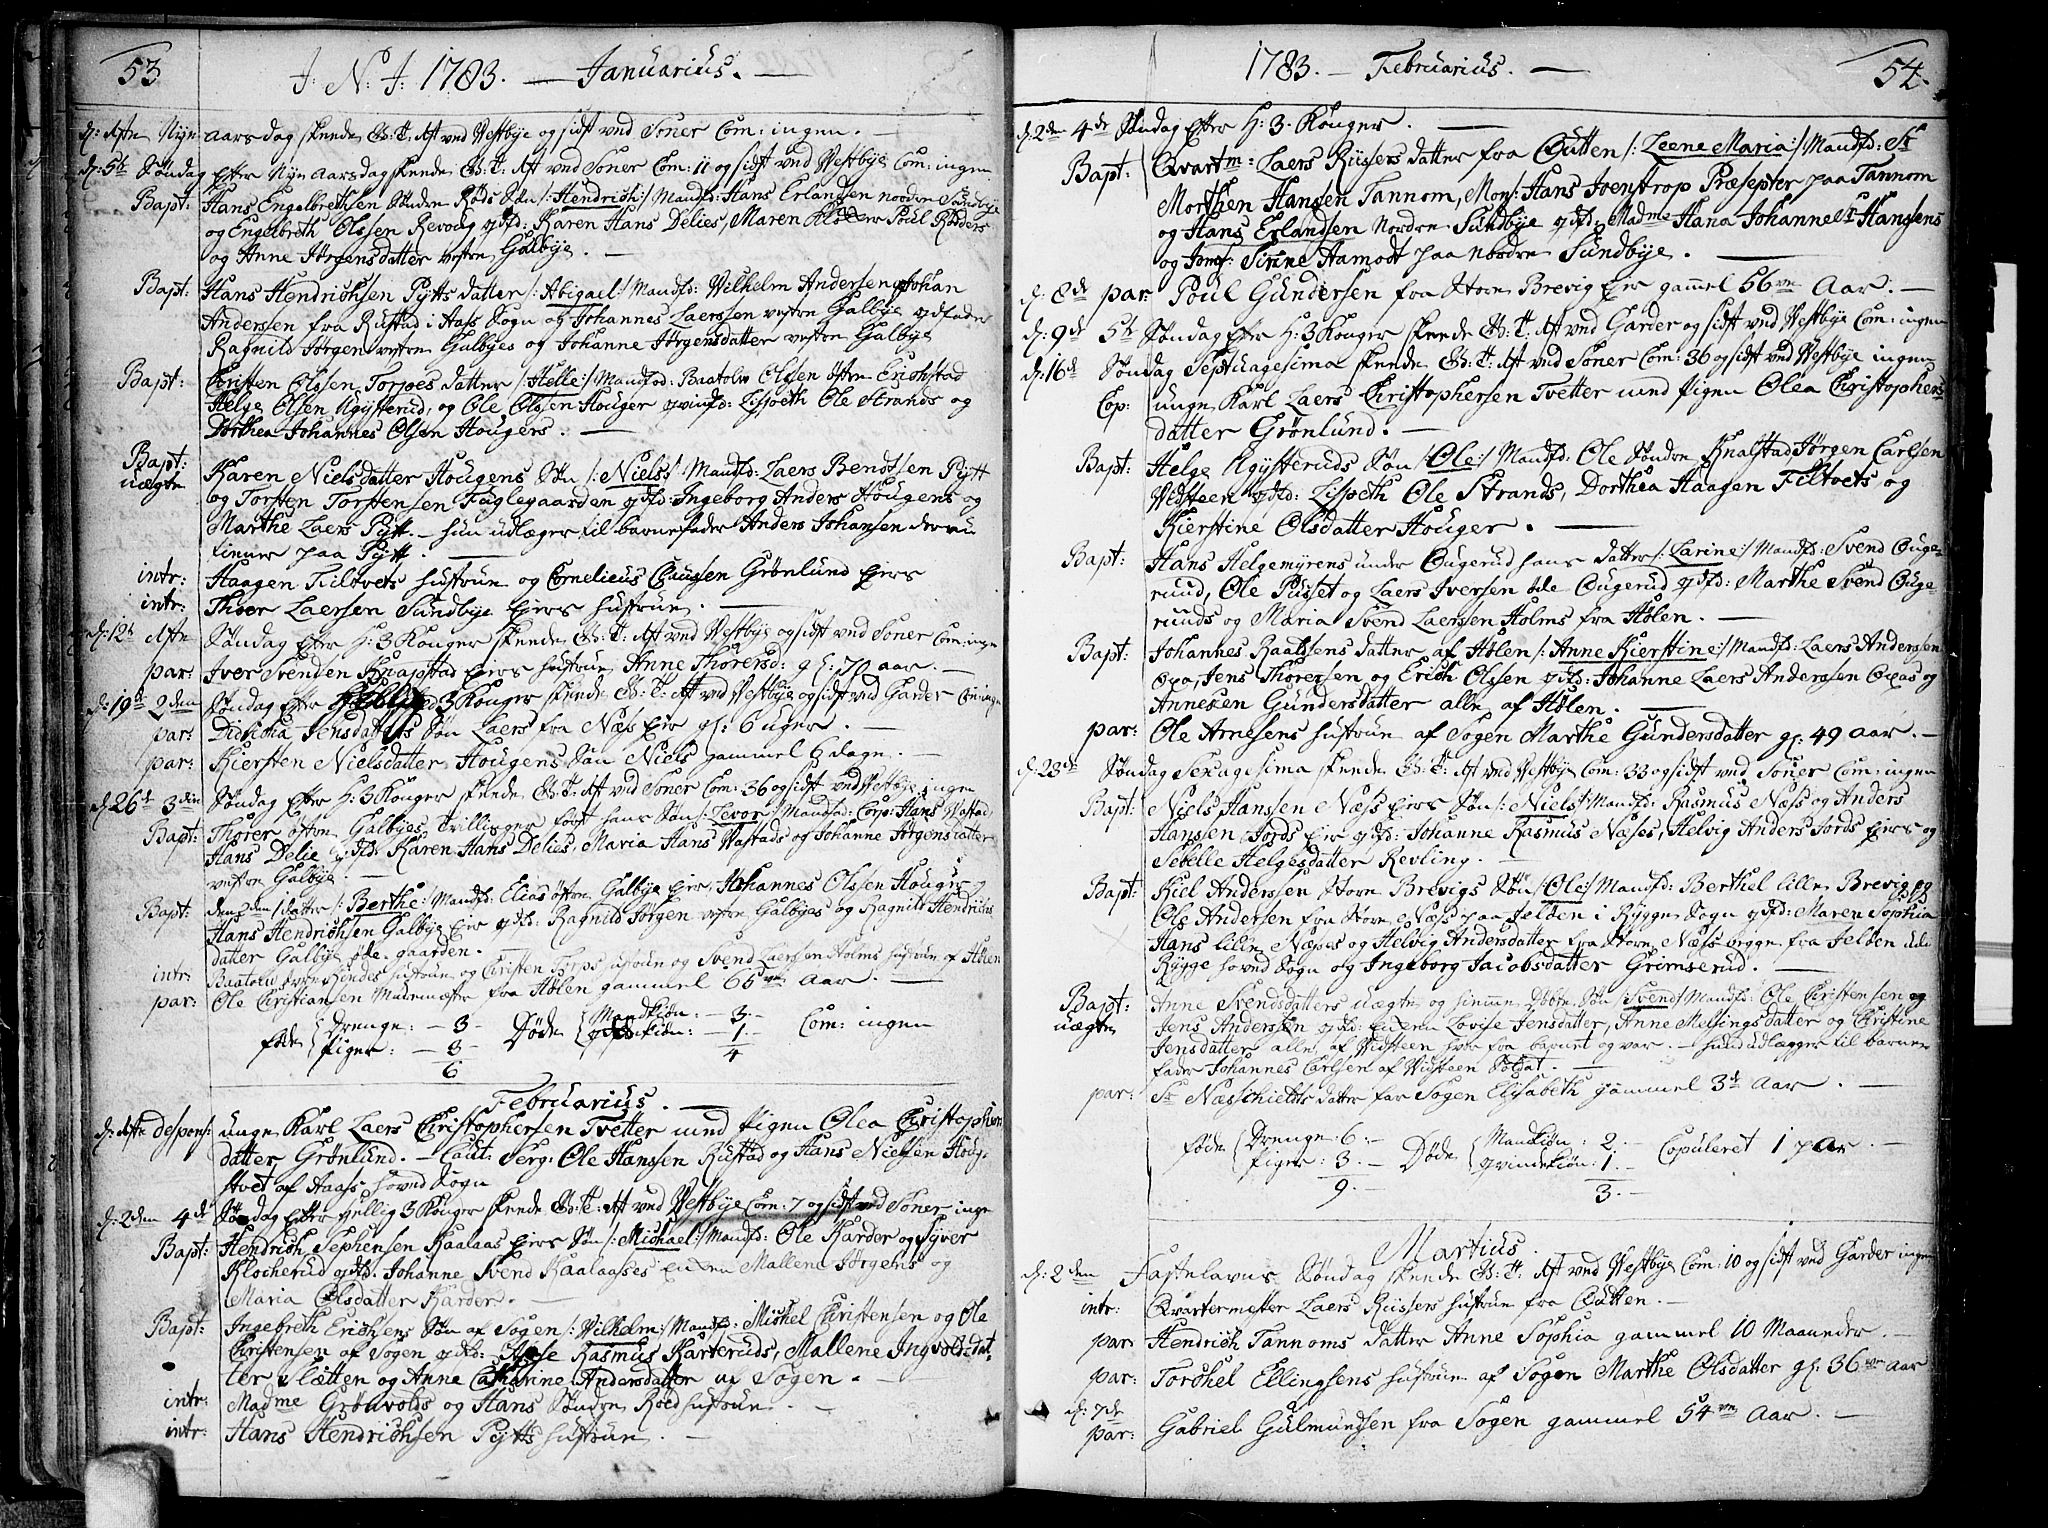 53
J: N: J: 1783. — Januarius. —
d: 1ste Nyn aars dag skeede G: T: 1st ved Vestbye og sidst ved Soner Com: ingen. —
d: 5te Søndag Efter Nyn Aarsdag skeede G: T: 1st ved Soner Com: 11 og sidst ved Vestbye Com: ingen
Bapt: Hans Engelbrethsen Søndre Røds Søn /: Hendrich :/ Mandfd: Hans Erlandsen nordre Sundbye
og Engebreth Olssen Revoug qvfd: Karen Hans Delies, Maren Poul Rødders
og Anne Jørgensdatter vestre Galbye. —
Bapt: Hans Hendrichsen Pytts datter /: Abigael :/ Mandfd: Vilhelm Andersen Johan
Anderssen fra Rustad i Aass Sogn og Johannes Laerssen vestre Galbye qvfadr
Ragnild Jørgen vestre Galbyes og Johanne Jørgensdatter vestre Galbye
Bapt: Christen Olssen Torpes datter /: Helle :/ Mandfd: Baatolv Olssen østre Erichstad
Helge Olsen Aggsterud, og Ole Olssen Houger qvindfd: Lisbeth Ole Strands og
Dorthea Johannes Olsen Hougers. —
Bapt: uægte Karen Nielsdatter Hougens Søn /: Niels :/ Mandfd: Laers Bendtsen Pytt
og Torsten Torstensen Fuglegaarden qvfd: Ingeborg Anders Hougens og
Marthe Laers Pytt. — hun udlæger til barnefader Anders Johansen der nu
tiener paa Pytt. —
intr: Haagen Filtvets hustrue og Cornelieus Clausen Grønlund Eiers
intr: Thoer Laersen Sundbye Eiers hustrue. —
d: 12te 1ste Søndag Efter H: 3 Konger skeede G: T: 1st ved Vestbye og sidst ved Soner Com: ingen
par: Iver Svendsen Knapstad Eiers hustrue Anne Thorersd: gl: 70 aar. —
d: 19de 2den Søndag Efter 3 Konger skeede G: T: 1st ved Vestbye og sidst ved Garder Com: ingen
par: Dichicha Jensdatters Søn Laers fra Næss Eie gl: 6 uger. —
par: Kiersten Nielsdatter Hougens Søn Niels gammel 6 dage. —
d: 26de 3die Søndag Efter H: 3 Konger skeede G: T: 1st ved Soner Com: 36 og sidst ved Vestbye ingen
Bapt: Thorer østre Galbyes Trillinger først hans Søn /: Levor :/ Mandfd: Corp: Hans Vastad
Hans Delie qvfd: Karen Hans Delies, Maria Hans Vastads og Johanne Jørgensdatter
vestre Galbye. —
Bapt: dens 2den datter /: Berthe :/ Mandfd: Elias østre Galbye Eie, Johannes Olssen Houger
Hans Hendrichsen Galbye Eie qvfd: Ragnild Jørgen vestre Galbyes og Ragnild Hendrichs
datter Galbye øde-gaarden. —
intr: Baatolv hustrue og Christen Torps hustrue og Svend Laerssen Holms hustrue af Hølen
par: Ole Christiansen Muremester fra Hølen gammel 65 ve Aar. —
føde { Drenge: — 3 — Døde { Mandkiøn: — 3 — Com: ingen
Piger: — 3 — qvindekiøn: — 1 —
6 4
Februarius. —
d: 1ste despons: unge Karl Laers Christophersen Tvetter med Pigen Olea Christophers
datter Grønlund. — Caut: Serg: Ole Hanssen Rustad og Hans Nielsen Houg-
stvet af Aass hoved Sogn
d: 2den 4de Søndag Efter hellig 3 Konger skeede G: T: 1st ved Vestbye Com: 7 og sidst ved Soner ingen
Bapt: Hendrich Stephensen Kaalaas Eiers Søn /: Michael :/ Mandfd: Ole Karder og Syver
Klocherud qvfd: Johanne Svend Kaalaasses Enken Mallene Jørgens og
Maria Olsdatter Karder. —
Bapt: Ingebreth Erichsens Søn af Sogen /: Vilhelm :/ Mandfd: Michel Christensen og Ole
Christensen af Sogen qvfd: Rasmus Karteruds, Mallene Ingvoldsdat-
ter Sletten og Anne Catharine Andersdatter af Sogen. —
intr: Madme Grønvolds og Hans Søndre Roed hustrue. —
intr: Hans Hendrichsen Pytts hustrue. —
1783. — Februarius. —
54.
d: 2den 4de Søndag Efter H: 3. Konger. —
Bapt: Qvartm: Laers Riisers datter fra Qutten /: Leene Maria :/ Mandfd: Sr
Morthen Hansen Tannom, Mons: Hans Iventrop Præsepter paa Tannom
og Hans Erlandsen Nordre Sundbye qvfd: Madme Hana Johanne Sr Hansens
og Jomf: Sirine Aamodt paa Nordre Sundbye. —
d: 8de par: Poul Gundersen fra Store Brevig Eie gammel 56 ve Aar. —
d: 9de 5te Søndag Efter H: 3 Konger skeede G: T: 1st ved Garder og sidst ved Vestbye Com: ingen
d: 16de Søndag Septuagesima skeede G: T: 1st ved Soner Com: 36 og sidst ved Vestbye ingen
Cop: unge Karl Laers Christophersen Tvetter med Pigen Olea Christophers-
datter Grønlund. —
Bapt: Helge Aggsteruds Søn /: Ole :/ Mandfd: Ole Søndre Knalstad Jørgen Carlsen
Vidsteen qvfd: Lisbeth Ole Strands, Dorthea Haagen Filtvets og
Kierstine Olsdatter Houger. —
Bapt: Hans Helgemyrens under Ougerud hans datter /: Larine :/ Mandfd: Svend Ouge-
ruud, Ole Pusset og Laers Iversen Ougerud qvfd: Marthe Svend Ouge-
ruuds og Maria Svend Laerssen Holms fra Hølen. —
Bapt: Johannes Raatssens datter af Hølen /: Anne Kierstine :/ Mandfd: Laers Anderssen
Oxa, Jens Thorersen og Erich Olssen qvfd: Johanne Laers Anderssen Oxas og
Annesen Gundersdatter alle af Hølen. —
par: Ole Arnesens hustrue af Sogen Marthe Gundersdatter gl: 49 aar. —
d: 23de Søndag Sexagesima skeede G: T: 1st ved Vestbye Com: 33 og sidst ved Soner Com: ingen
Bapt: Niels Hanssen Næss Eiers Søn /: Niels :/ Mandfd: Rasmus Næss og Anders
Hanssen Jords Eie qvfd: Johanne Rasmus Næsses, Helvig Anders Jords Eiers og
Sebelle Helgesdatter Revling. —
Bapt: Kiel Anderssen Store Brevigs Søn /: Ole :/ Mandfd: Berthel lille Brevig og
Ole Andersen fra Store Næss paa Jeløen i Rygge Sogn qvfd: Maren Sophia
Hans lille Næsses og Helvig Andersdatter fra Store Næss begge fra Jeløen udi
Rygge hoved Sogn og Ingeborg Jacobsdatter Grimserud. —
Bapt: uægte Anne Svendsdatters uægte og hiemme Døbte Søn /: Svend :/ Mandfd: Ole Christensen og
Jens Anderssen qvfd: Enken Lovise Jensdatter, Anne Melsingsdatter og Christine
Jensdatter alle af Vidsteen hvor fra barnet og var. — hun udlægger til barne-
fader Johannes Carlsen af Vidsteen Soldat. —
par: Sr Næsschielts datter fra Sogen Elisabeth gammel 3 1/2 Aar. —
føde { Drenge: 6: — Døde { Mandkiøn: 2. — Copuleret 1 par. —
Piger: 3. — qvindekiøn: 1. —
9. — 3. —
Martius.
d: 2den Fastelavns Søndag skeede G: T: 1st ved Vestbye Com: 10 og sidst ved Garder ingen
intr: Qvartermester Laers Riissers hustrue fra Qutten. —
par: Hendrich Tannoms datter Anne Sophia gammel 10 Maaneder. —
par: Torchel Ellingsens hustrue af Sogen Marthe Olsdatter gl: 36 ve aar
d: 7de par: Gabriel Gulmundsen fra Sogen gammel 54 ve Aar. —